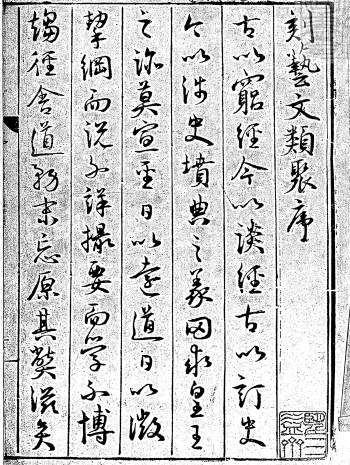 刻藝文類聚序
古以窮經今以談經古以訂史
今以涉史墳典之義罔求皇王
之跡莫宣聖日以遠道日以微
挈綱而說不詳撮要而學不博
趨徑舍道務末忘原其弊滋矣